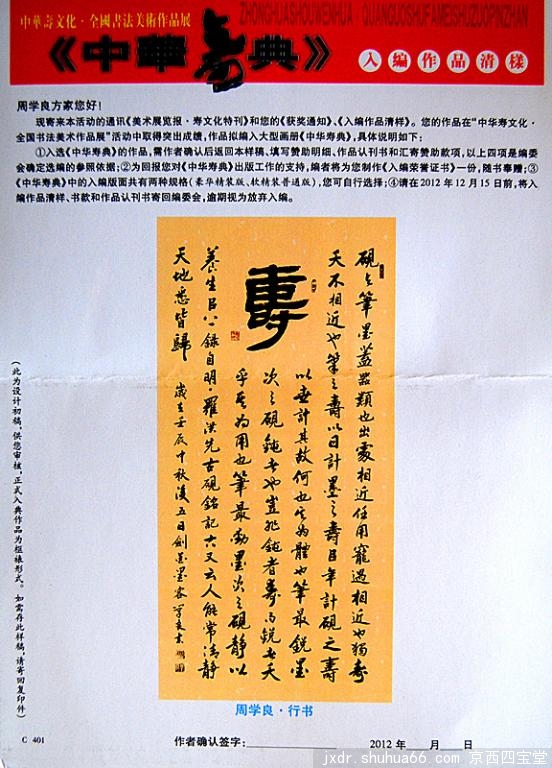 中華壽文化·全國書法美術作品展
ZHONGHUASHOUWENHUA · QUANGUOSHUFAMEISHUZUOPINZHAN
《中華壽典》
入編作品清樣
周学良方家您好!
现寄来本活动的通讯《美术展览报·寿文化特刊》和您的《获奖通知》、《入编作品清样》。您的作品在“中华寿文化·
全国书法美术作品展”活动中取得突出成绩,作品拟编入大型画册《中华寿典》,具体说明如下:
①入选《中华寿典》的作品,需作者确认后返回本样稿、填写赞助明细、作品认刊书和汇寄赞助款项,以上四项是编委
会确定选编的参照依据;②为回报您对《中华寿典》出版工作的支持,编者将为您制作《入编荣誉证书》一份,随书奉赠;③
《中华寿典》中的入编版面共有两种规格(豪华精装版、软精装普通版),您可自行选择;④请在2012年12月15日前,将入
编作品清样、书款和作品认刊书寄回编委会,逾期视为放弃入编。
硯與筆墨蓋器類也出處相近任用寵遇相近也獨壽
夭不相近也筆之壽以日計墨之壽計硯之壽
壽
以世計其故何也其為體也筆最銳墨
次之硯鈍者也豈非鈍者壽而銳者夭
乎其為用也筆最動墨次之硯靜以
養生錄自明·羅洪先古硯銘記六又云人能常清靜
天地悉皆歸 歲在壬辰中秋後五日劍墨客學良書
(此为设计初稿,供您审核,正式入典作品为框裱形式。如需存此样稿,请寄回复印件)
周学良·行书
C 401
作者确认签字:
2012 年 月 日
jxdr.shuhua66.com 京西四宝堂